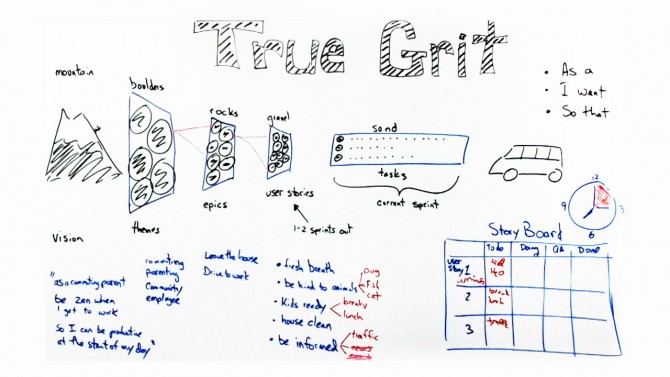 True Grit
mountain
boulders
rocks
gravel
sand
• As a
• I want
• So that
themes
epics
user stories
1-2 sprints out
tasks
current sprint
12
3
6
9
Vision
"as a commuting parent
be zen when
I get to work
so I can be productive
at the start of my day"
commuting
parenting
Community
employee
Leave the house
Drive to work
• fresh breath
• be kind to animals
dog
fish
cat
• Kids ready
breaky
lunch
• house clean
• be informed
traffic
news
Story Board
Todo
Doing
QA
Done
user
story 1
H2O
2
lunch
3
traffic